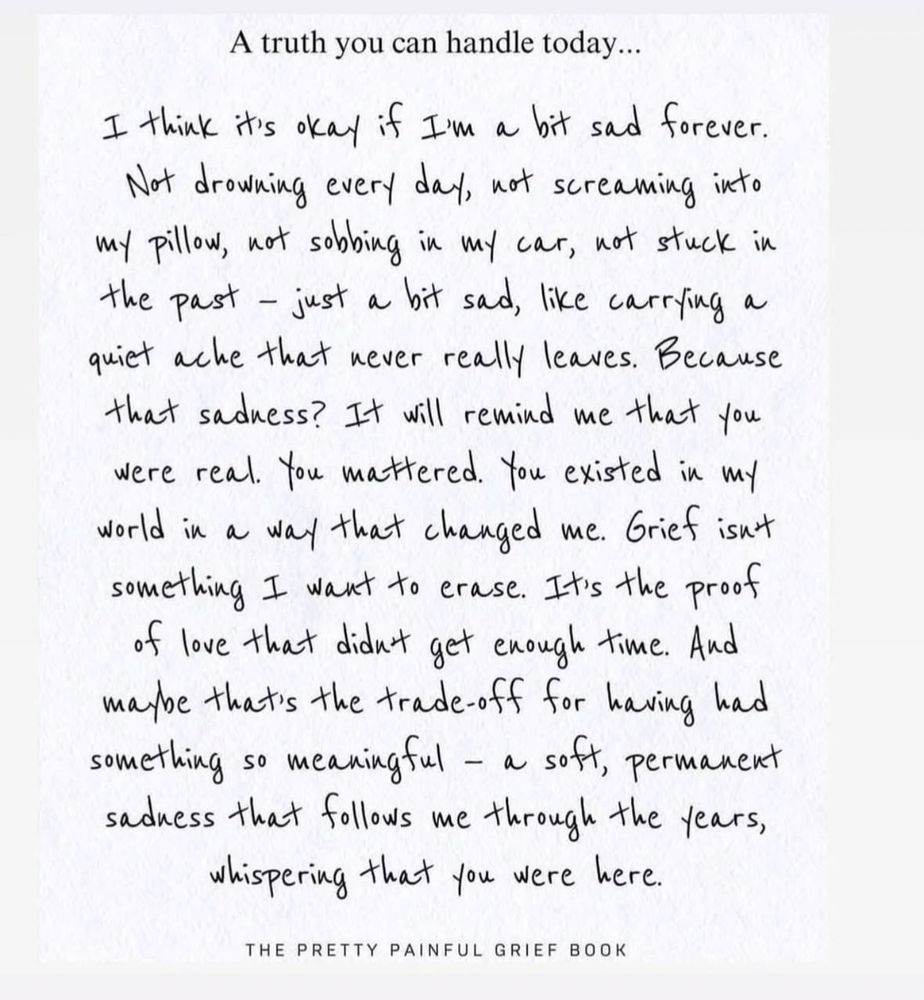 A truth you can handle today...
I think it's okay if I'm a bit sad forever.
Not drowning every day, not screaming into
my pillow, not sobbing in my car, not stuck in
the past – just a bit sad, like carrying a
quiet ache that never really leaves. Because
that sadness? It will remind me that you
were real. You mattered. You existed in my
world in a way that changed me. Grief isn't
something I want to erase. It's the proof
of love that didn't get enough time. And
maybe that's the trade-off for having had
something so meaningful – a soft, permanent
sadness that follows me through the years,
whispering that you were here.
THE PRETTY PAINFUL GRIEF BOOK